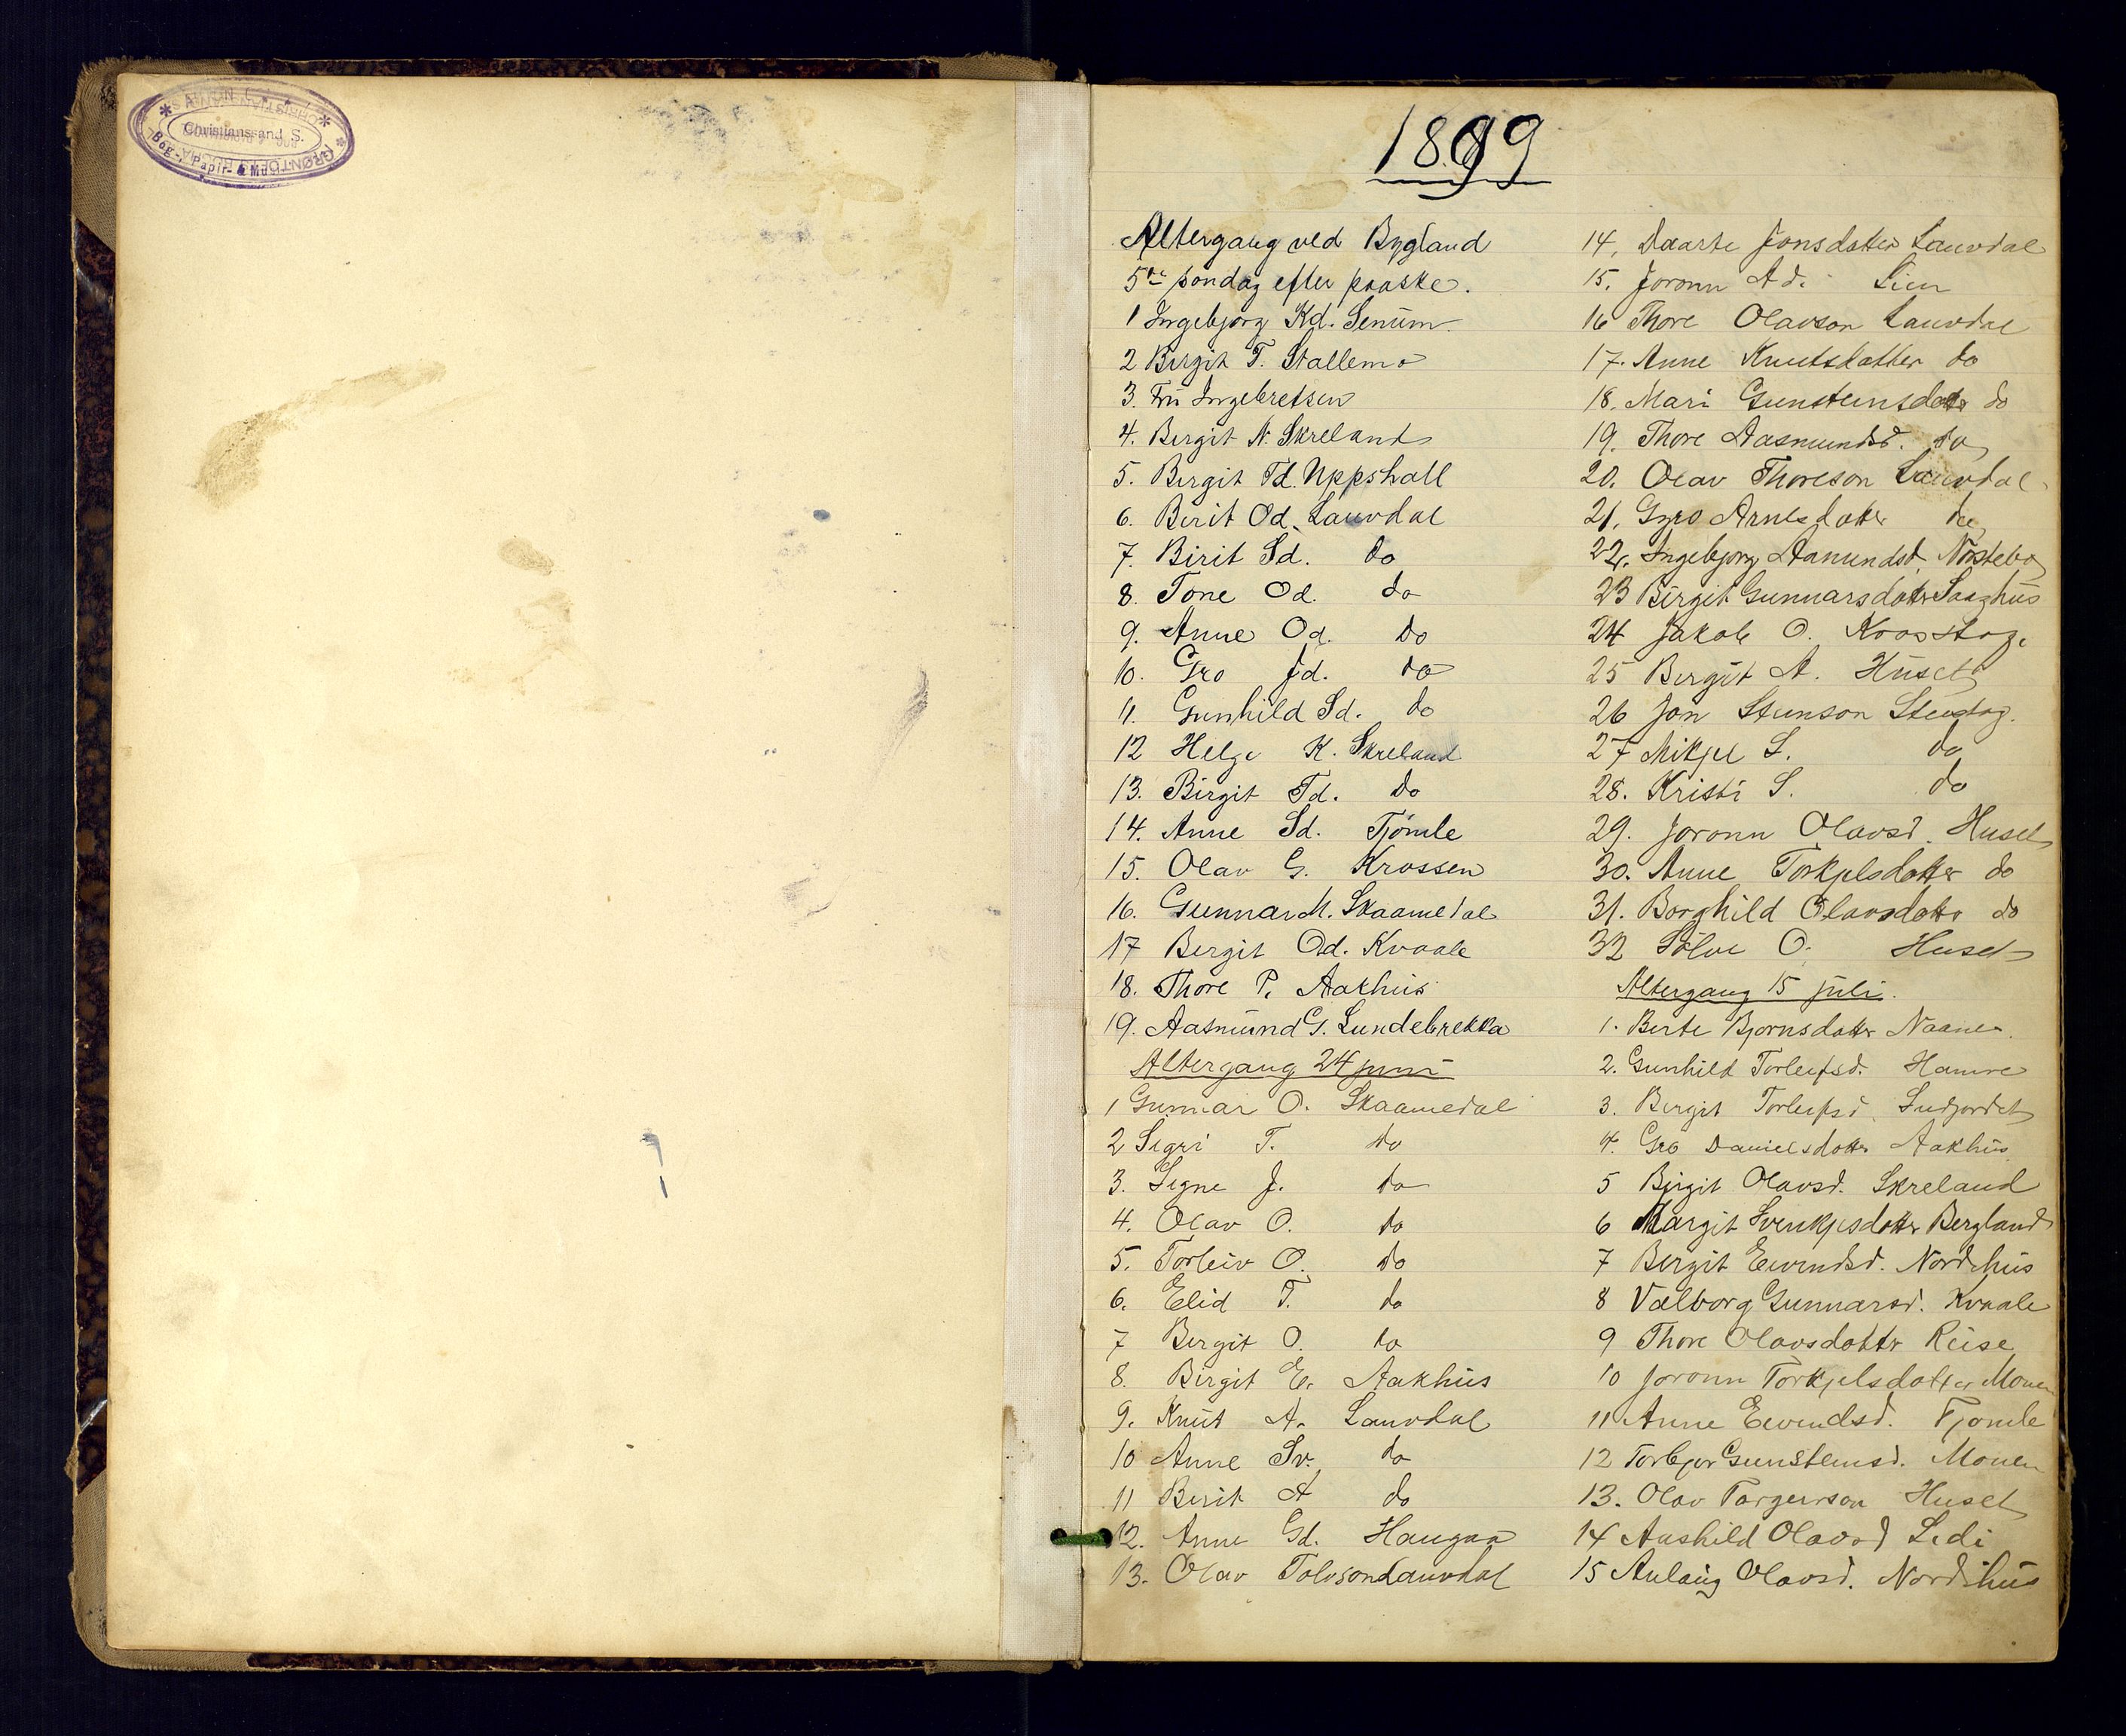 Christianssand S.
1899
Altergang ved Bygland
5te søndag efter paaske.
1 Ingebjørg Kd. Senum
2 Birgit T. Stallemo
3. Fru Ingebretsen
4. Bergit N. Skreland
5. Bergit Td. Uppstall
6. Berit Od. Lauvdal
7. Birit Sd. do
8. Tone Od. do
9. Anne Od. do
10. Gro Jd. do
11. Gunhild Sd. do
12 Helge K. Skreland
13. Birgit Td. do
14. Anne Sd. Tjømle
15. Olav G. Krossen
16. Gunnar M. Skaamedal
17 Bergit Od. Kvaale
18. Thore P. Aakhus
19. Aasmund G. Lundebrekka
Altergang 24 juni
1 Gunnar O. Skaamedal
2 Sigri T. do
3. Signe J. do
4. Olav O. do
5. Torleiv O. do
6. Elid T. do
7 Bergit O. do
8. Birgit E. Aakhus
9. Knut A. Lauvdal
10 Anne Sv. do
11 Berit A do
12. Anne Gd. Haugaa
13. Olav Tolvson Lauvdal
14. Daarte Jonsdatter Lauvdal
15. Joronn Ad. Lien
16 Thore Olavson Lauvdal
17. Anne Knutsdatter do
18. Mari Gunsteinsdatr do
19. Thore Aasmundsd. do
20. Olav Thoreson Lauvdal
21. Gyro Arnesdatter do
22. Ingebjørg Aamundsd. Nørstebø
23 Birgit Gunnarsdatter Saaghus
24 Jakob O.
25 Bergit A. Huset
26 Jon Steinson
27 Mikjel S. do
28. Kristi S. do
29. Joronn Olavsd. Huset
30. Anne Torkjelsdatter do
31. Borghild Olavsdatter do
32 Sølve O. Huset
Altergang 15 juli.
1. Berte Bjørnsdatter Naanes
2. Gunhild Torleifsd. Hamre
3. Bergit Torleifsd.
4. Gro Danielsdatter Aakhus
5 Birgit Olavsd. Skreland
6 Margit Svenkjesdatter Bergland
7 Bergit Eivindsd. Nordhus
8 Valborg Gunnarsd. Kvaale
9 Thore Olavsdatter Reise
10 Joronn Torkjelsdatter Moen
11 Anne Eivindsd. Tjømle
12 Torbjør Gunsteinsd. Monen
13. Olav Torgeirson Huset
14 Aashild Olavsd Lidi
15 Aulaug Olavsd. Nordhus